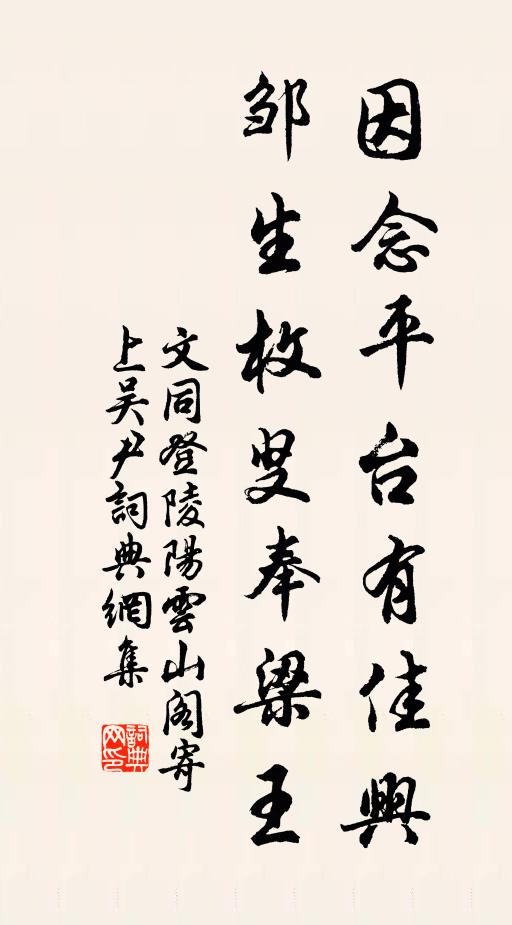 因念平台有佳興
邹生枚叟奉梁王
文同登陵陽雲山阁寄
上吴尹詞典網集
詞典
网印